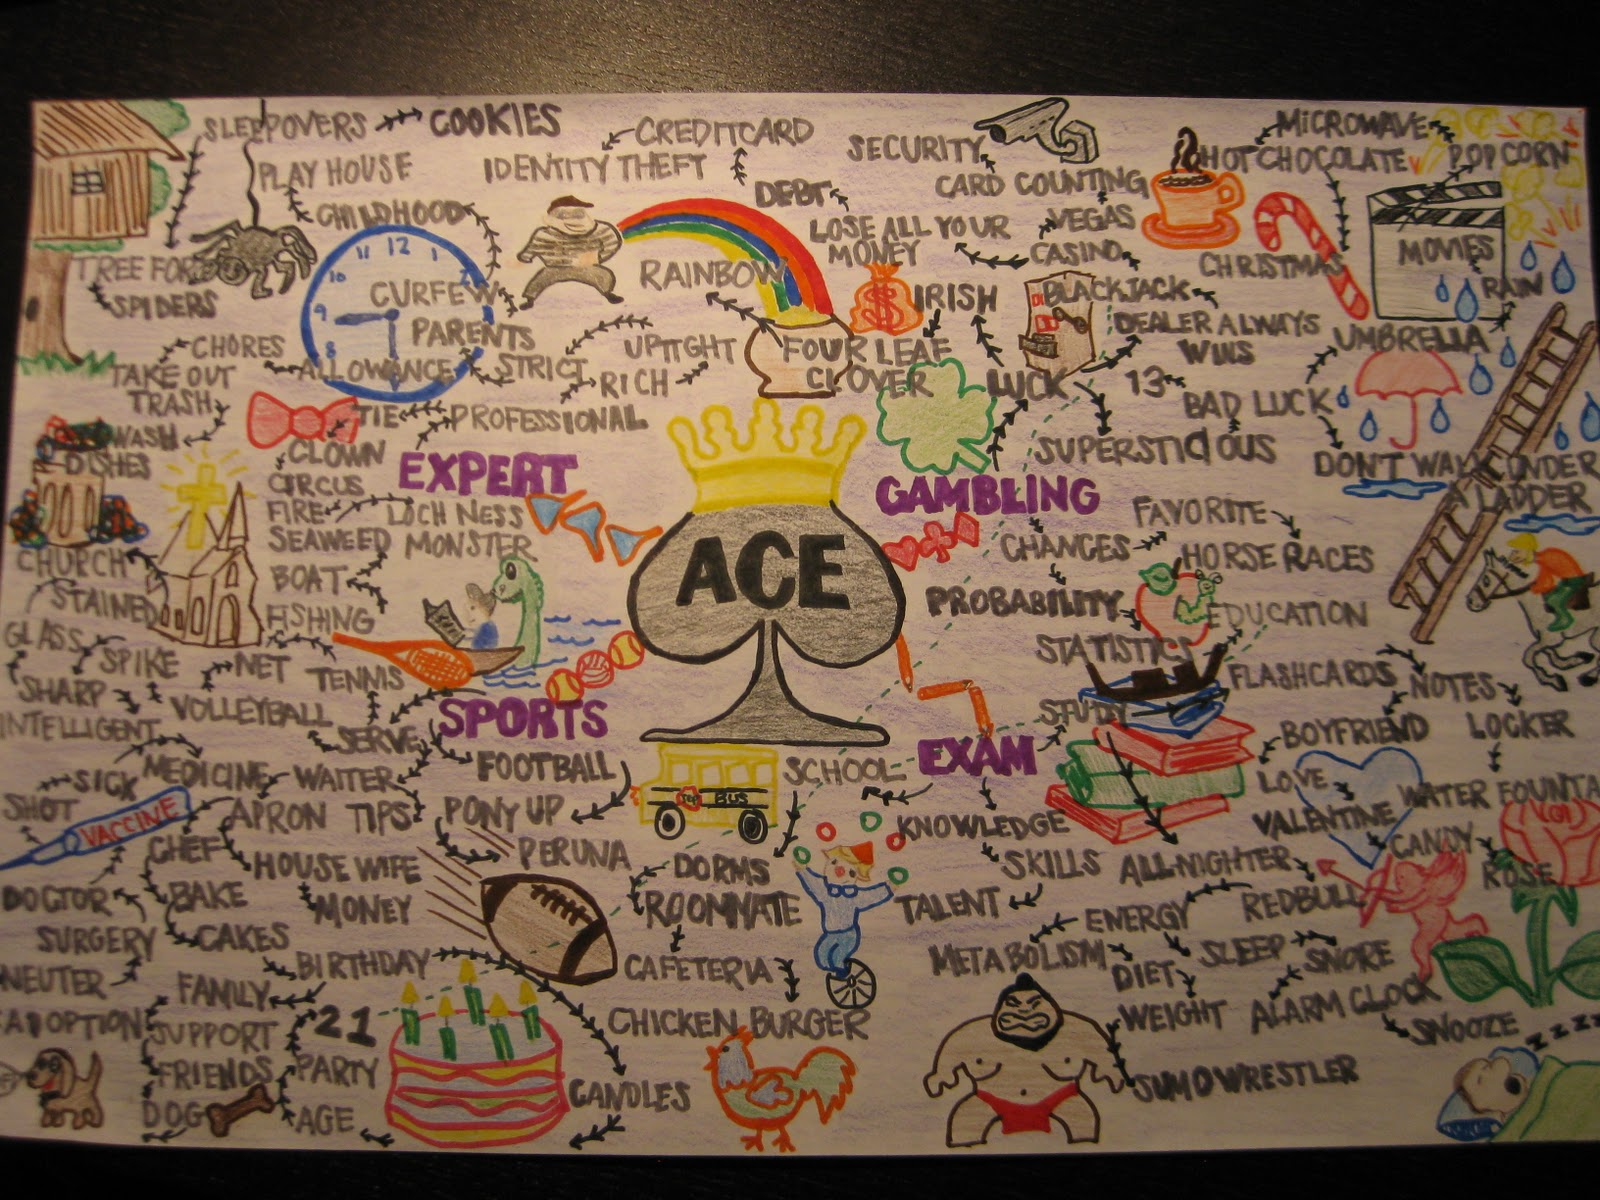 SLEEPOVERS
COOKIES
CREDITCARD
IDENTITY THEFT
PLAY HOUSE
CHILDHOOD
TREE FORT
SPIDERS
12
11
1
10
2
9
8
CURFEW
PARENTS
CHORES
ALLOWANCE
STRICT
TAKE OUT
TRASH
WASH
DISHES
RICH
UPTIGHT
TIE
PROFESSIONAL
CLOWN
CIRCUS
FIRE
EXPERT
LOCH NESS
MONSTER
SEAWEED
BOAT
FISHING
CHURCH
STAINED
GLASS
SPIKE
SHARP
INTELLIGENT
NET
TENNIS
VOLLEYBALL
SERVE
SPORTS
DEBT
LOSE ALL YOUR
MONEY
$
RAINBOW
SECURITY
CARD COUNTING
VEGAS
CASINO
BLACKJACK
DEALER ALWAYS
WINS
IRISH
FOUR LEAF
CLOVER
LUCK
13
BAD LUCK
SUPERSTICIOUS
MICROWAVE
HOT CHOCOLATE
POPCORN
CHRISTMAS
MOVIES
RAIN
UMBRELLA
DON'T WALK UNDER
A LADDER
ACE
GAMBLING
CHANCES
FAVORITE
HORSE RACES
PROBABILITY
STATISTICS
EDUCATION
STUDY
FLASHCARDS
NOTES
LOCKER
BOYFRIEND
LOVE
VALENTINE
WATER FOUNTA
CANDY
ROSE
EXAM
SCHOOL
BUS
KNOWLEDGE
SKILLS
TALENT
ALL-NIGHTER
REDBULL
ENERGY
METABOLISM
DIET
WEIGHT
SLEEP
SNORE
ALARM CLOCK
SNOOZE
ZZZZ
SUMO WRESTLER
SICK
SHOT
MEDICINE
WAITER
VACCINE
APRON
TIPS
CHEF
HOUSE WIFE
MONEY
DOCTOR
BAKE
SURGERY
CAKES
NEUTER
BIRTHDAY
FAMILY
ADOPTION
SUPPORT
21
FRIENDS
PARTY
DOG
AGE
CANDLES
FOOTBALL
PONY UP
PERUNA
DORMS
ROOMMATE
CAFETERIA
CHICKEN BURGER